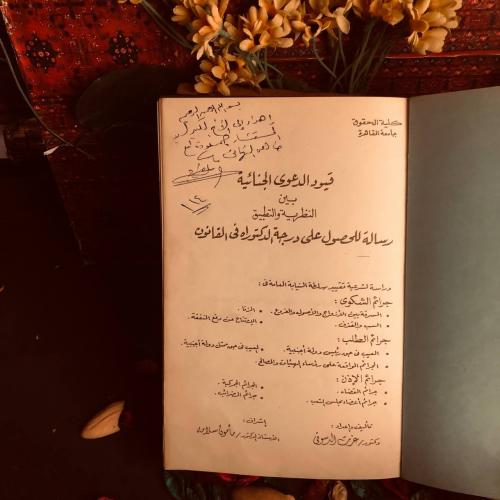 كلية الحقوق
جامعة القاهرة
بسم الله الرحمن الرحيم
إهداء إلى الأخ
قيود الدعوى الجنائية
بين
النظرية والتطبيق
رسالة للحصول على درجة الدكتوراه فى القانون
دراسة لشرعية تقييد سلطة النيابة العامة فى :
جرائم الشكوى :
• السرقة بين الأزواج والأصول والفروع . • الزنا .
• السب والقذف . • الإمتناع عن دفع النفقة .
جرائم الطلب :
• العيب فى حق رئيس دولة أجنبية . • العيب فى حق ممثل دولة أجنبية .
• الجرائم الواقعة على رؤساء الهيئات والمصالح .
جرائم الإذن :
• جرائم القضاء . • الجرائم الجمركية .
• جرائم أعضاء مجلس الشعب . • جرائم الضرائب .
تأليف وإعداد : إشراف :
دكتور / عزت الدسوقى الأستاذ الدكتور / مأمون سلامه